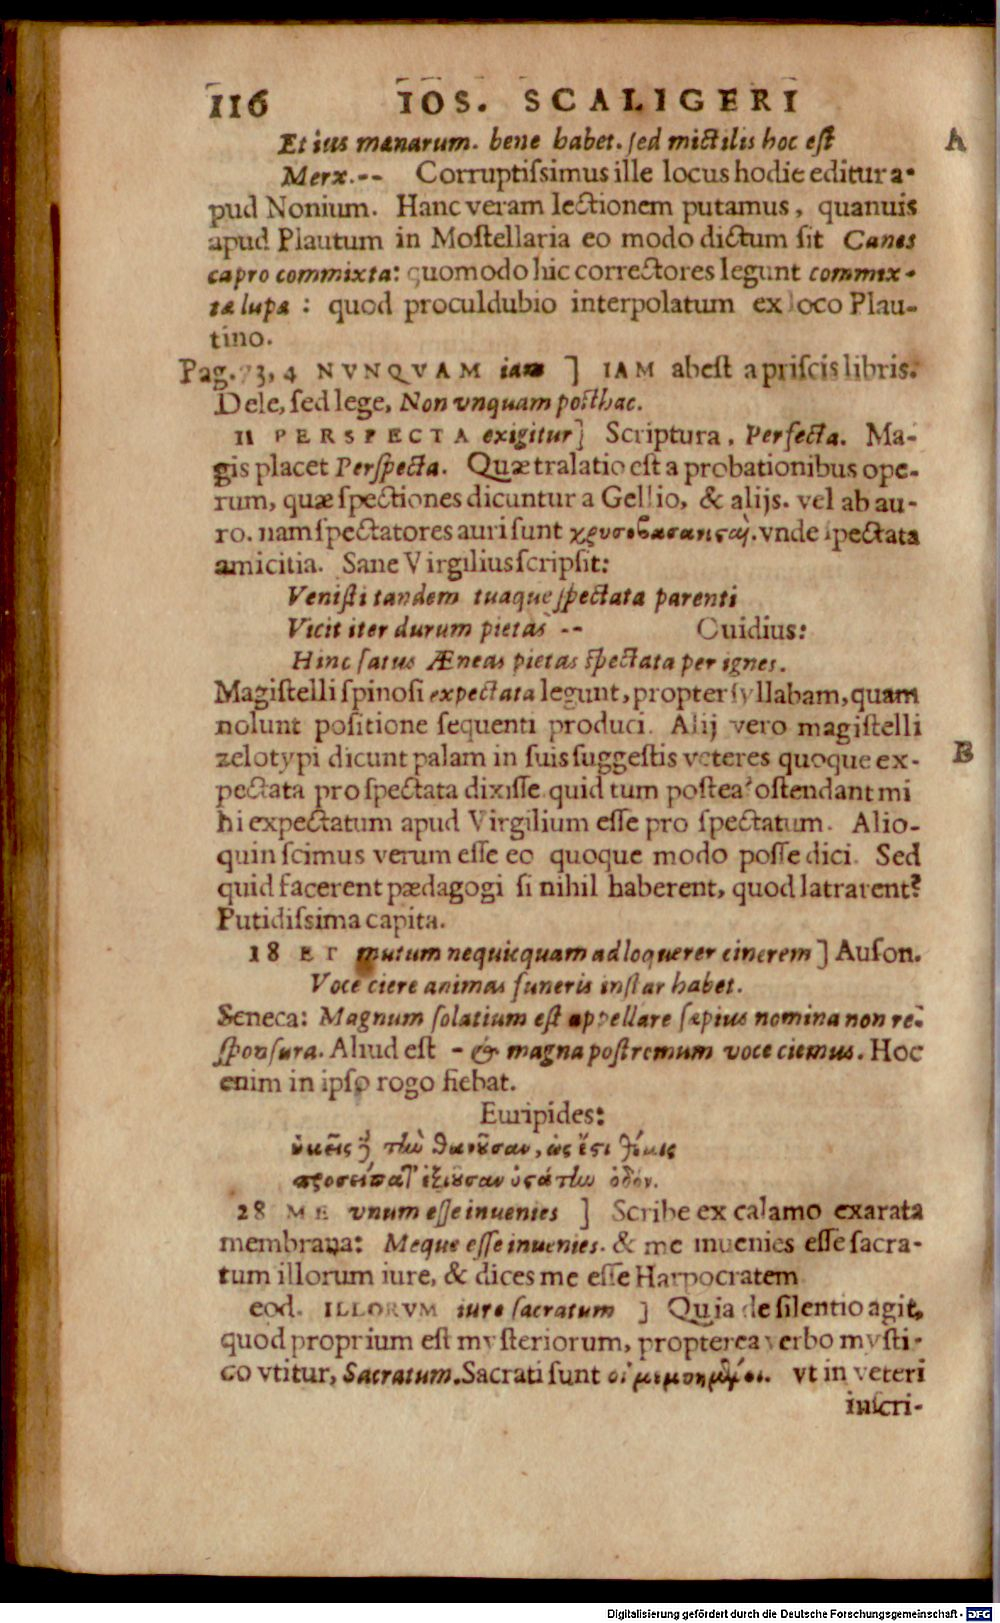 116 IOS. SCALIGERI
Et ius mænarum. bene habet. sed mictilis hoc est A
Merx.-- Corruptiſsimus ille locus hodie editur a-
pud Nonium. Hanc veram lectionem putamus, quanuis
apud Plautum in Moſtellaria eo modo dictum ſit Canes
capro commixta: quomodo hic correctores legunt commix-
ta lupa : quod proculdubio interpolatum ex loco Plau-
tino.
Pag. 73, 4 NVNQVAM iam ] IAM abeſt a priſcis libris.
Dele, ſed lege, Non vnquam poſthac.
11 PERSPECTA exigitur] Scriptura, Perfecta. Ma-
gis placet Perſpecta. Quæ tralatio eſt a probationibus ope-
rum, quæ ſpectiones dicuntur a Gellio, & alijs. vel ab au-
ro. nam ſpectatores auri ſunt vnde ſpectata
amicitia. Sane Virgilius ſcripſit:
Veniſti tandem tuaque ſpectata parenti
Vicit iter durum pietas -- Ouidius:
Hinc ſatus Æneas pietas ſpectata per ignes.
Magiſtelli ſpinoſi expectata legunt, propter ſyllabam, quam
nolunt poſitione ſequenti produci. Alij vero magiſtelli
zelotypi dicunt palam in ſuis ſuggeſtis veteres quoque ex- B
pectata pro ſpectata dixiſſe. quid tum poſtea? oſtendant mi
hi expectatum apud Virgilium eſſe pro ſpectatum. Alio-
quin ſcimus verum eſſe eo quoque modo poſſe dici. Sed
quid facerent pædagogi ſi nihil haberent, quod latrarent?
Putidiſsima capita.
18 ET mutum nequicquam adloquerer cinerem ] Auſon.
Voce ciere animas funeris inſtar habet.
Seneca: Magnum ſolatium eſt appellare ſæpius nomina non re-
ſponſura. Aliud eſt - & magna poſtremum voce ciemus. Hoc
enim in ipſo rogo fiebat.
Euripides:
ὑμεῖς ἢ τὴν θανοῦσαν, ὡς ἔστι
προσείπατ' ἐξιοῦσαν ὑστάτην ὁδόν.
28 ME vnum eſſe inuenies ] Scribe ex calamo exarata
membrana: Meque eſſe inuenies. & me inuenies eſſe ſacra-
tum illorum iure, & dices me eſſe Harpocratem
eod. ILLORVM iure ſacratum ] Quia de ſilentio agit,
quod proprium eſt myſteriorum, propterea verbo myſti-
co vtitur, Sacratum. Sacrati ſunt οἱ vt in veteri
inſcri-
Digitalisierung gefördert durch die Deutsche Forschungsgemeinschaft - DFG